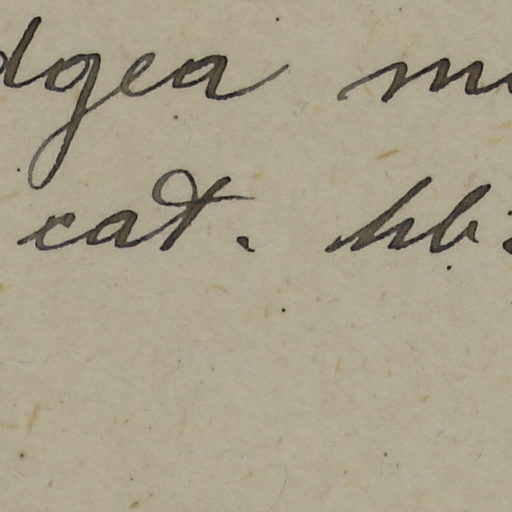 dgea m
cat. hb: